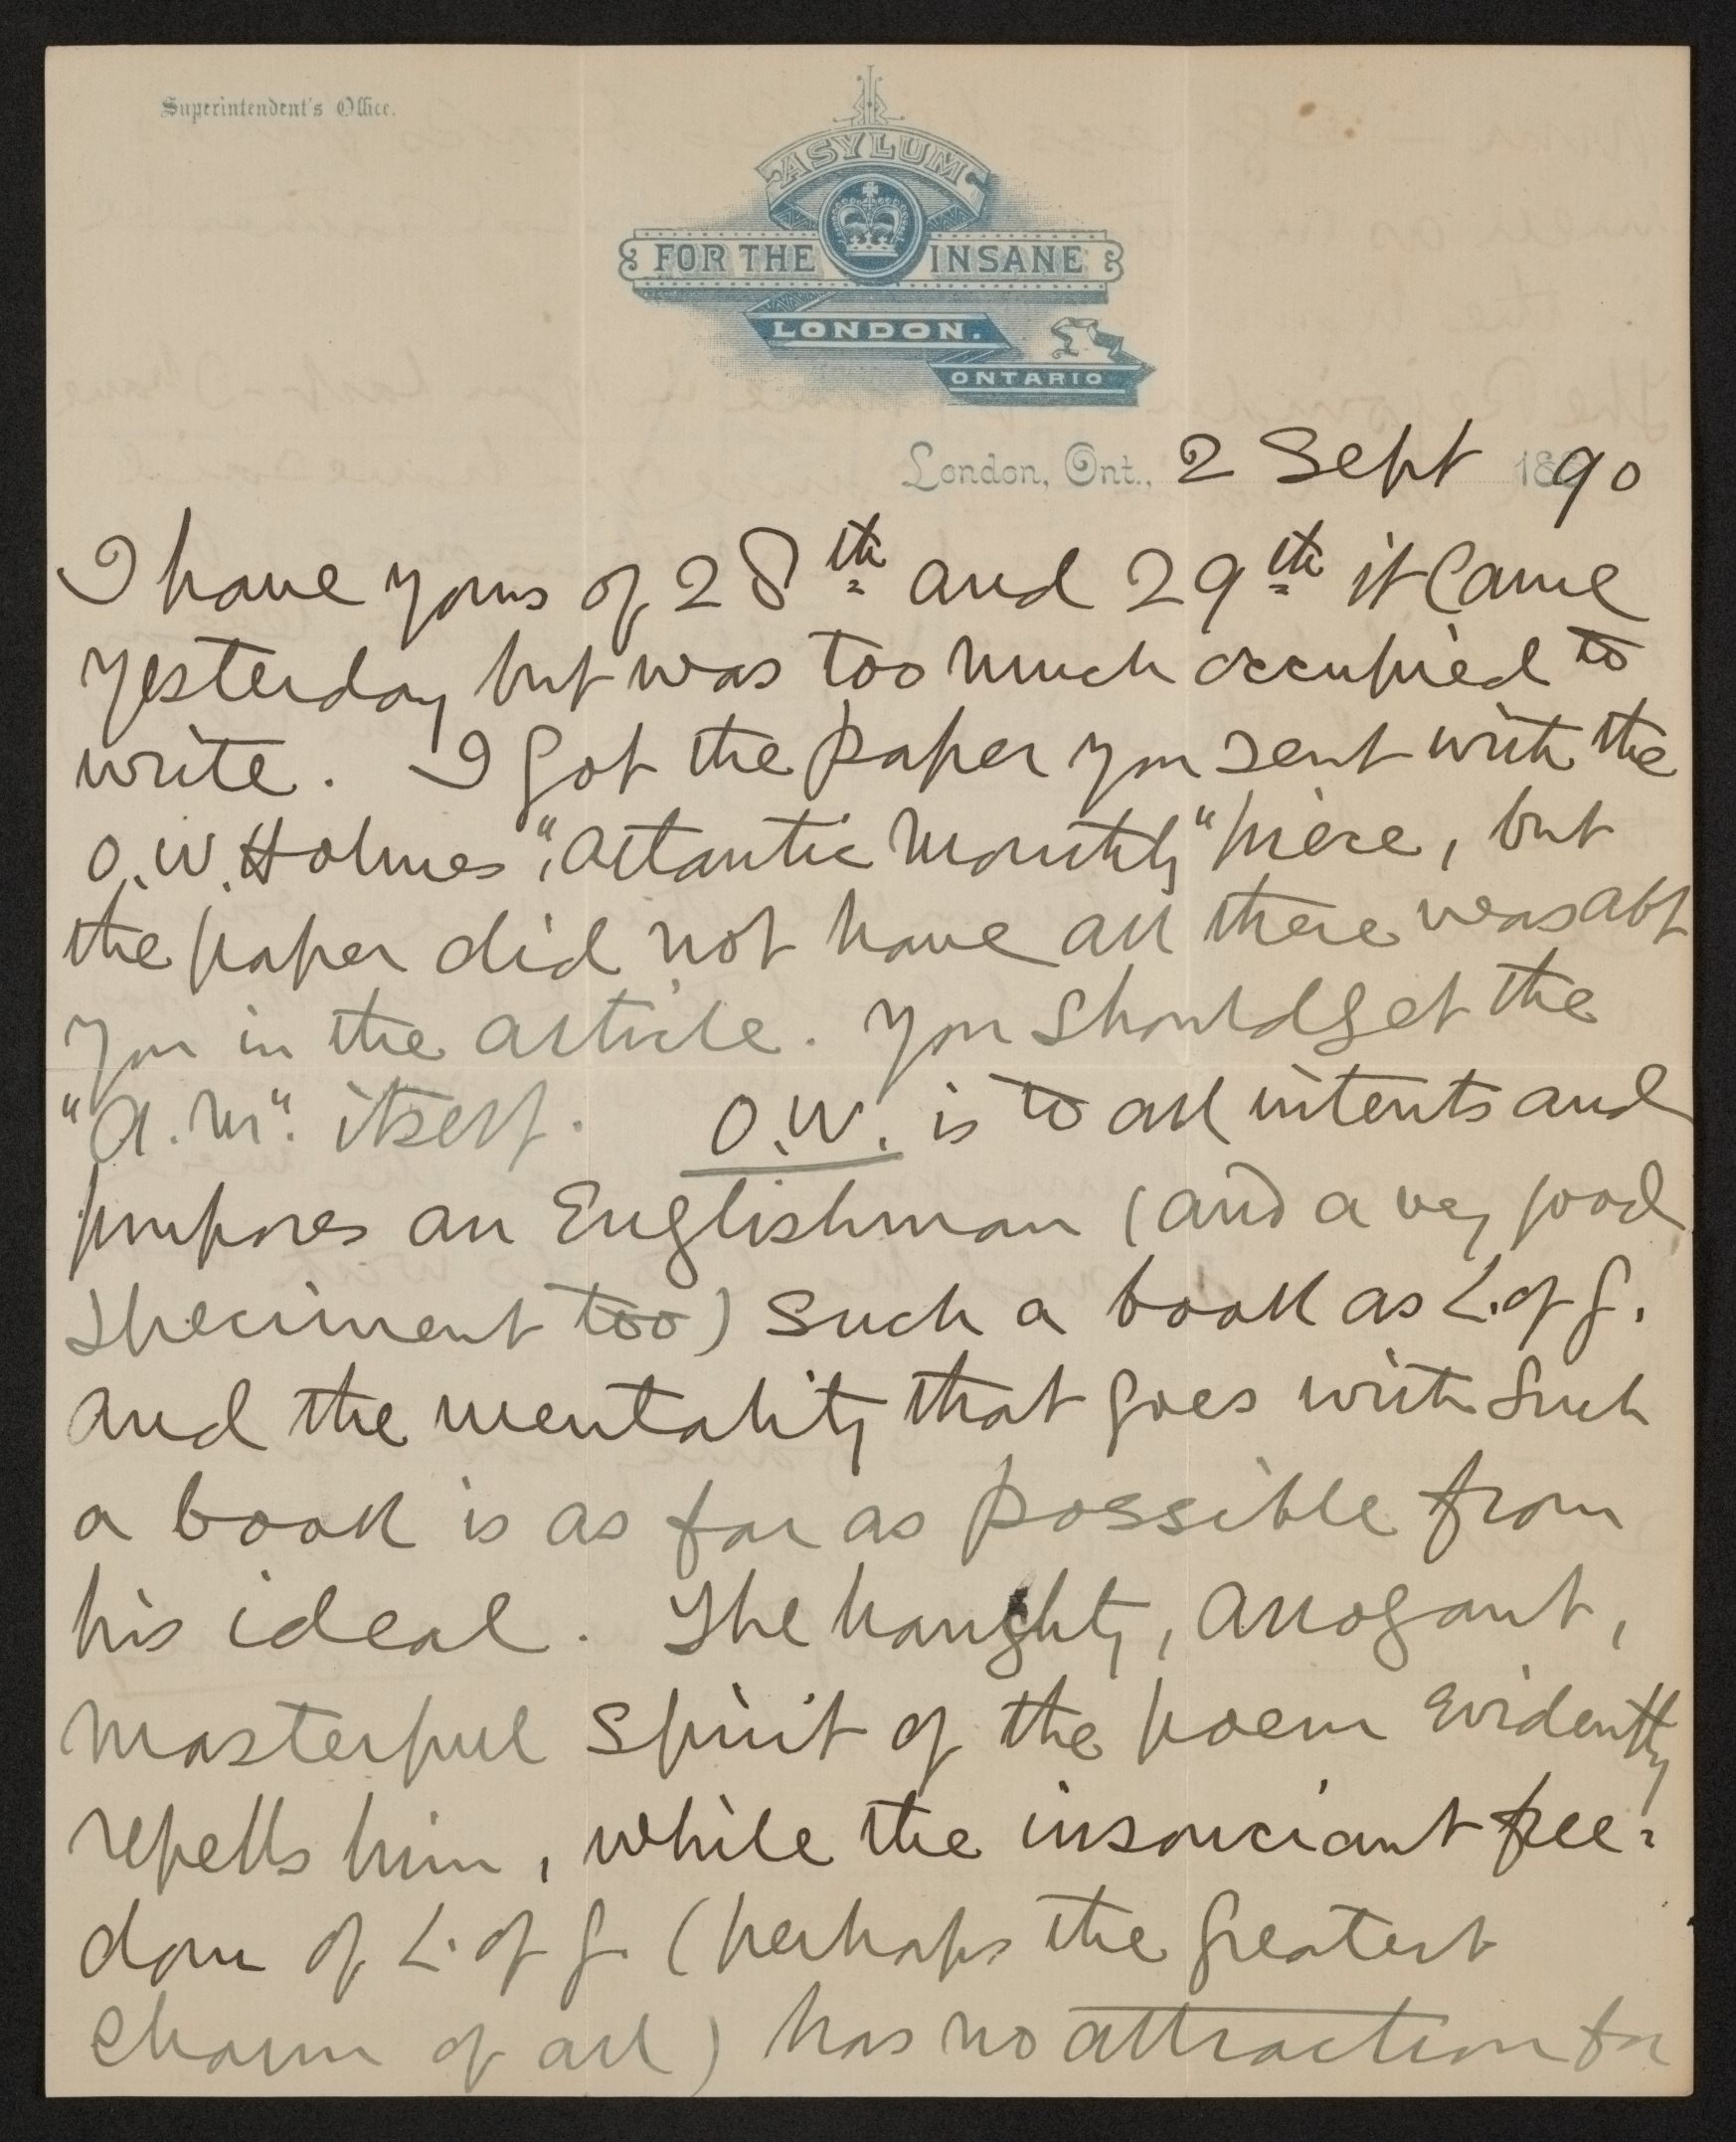 Superintendent's Office.
ASYLUM
FOR THE INSANE
LONDON.
ONTARIO
London, Ont., 2 Sept 1890
I have yours of 28th and 29th it came
yesterday but was too much occupied to
write. I got the paper you sent with the
O.W. Holmes "Atlantic Monthly" piece, but
the paper did not have all there was abt
you in the article. You should get the
"A.M". itself. O.W. is to all intents and
purposes an Englishman (and a vey good
speciment too) such a book as L. of G.
and the mentality that goes with such
a book is as far as possible from
his ideal. The haughty, arrogant,
masterful spirit of the poem evidently
repells him, while the insouciant free-
dom of L. of G. (perhaps the greatest
charm of all) has no attraction for